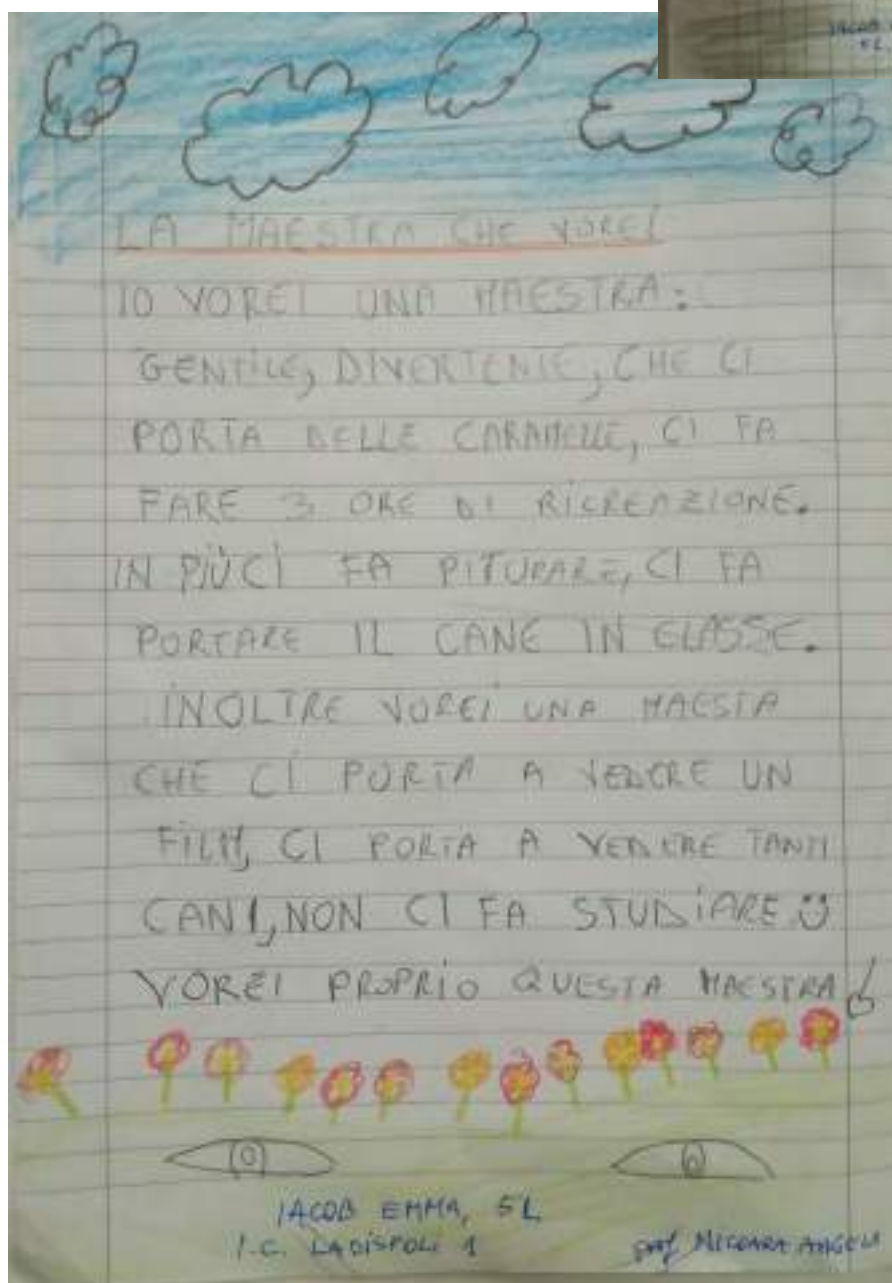 IACOB
5L
LA MAESTRA CHE VOREI
IO VOREI UNA MAESTRA:
GENTILE, DIVERTENTE, CHE CI
PORTA DELLE CARAMELLE, CI FA
FARE 3 ORE DI RICREAZIONE.
IN PIÙ CI FA PITURARE, CI FA
PORTARE IL CANE IN CLASSE.
INOLTRE VOREI UNA MAESTA
CHE CI PORTA A VEDERE UN
FILM, CI PORTA A VEDERE TANTI
CANI, NON CI FA STUDIARE
VOREI PROPRIO QUESTA MAESTRA!
IACOB EMMA, 5L
I.C. LADISPOLI 1
prof